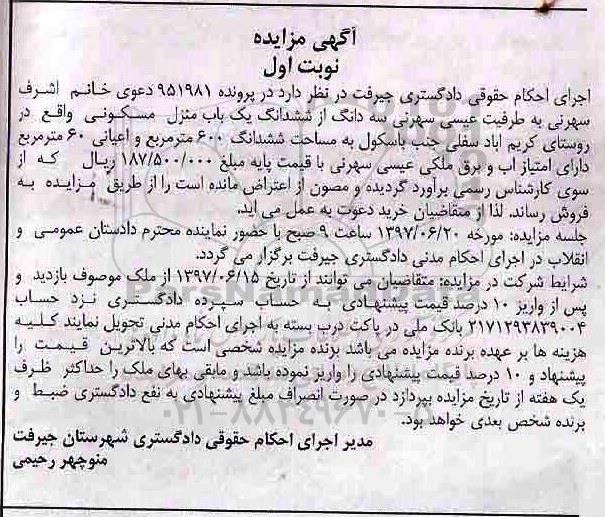 آگهی مزایده
نوبت اول
اجرای احکام حقوقی دادگستری جیرفت در نظر دارد در پرونده ۹۵۱۹۸۱ دعوی خانم اشرف
سهرنی به طرفیت عیسی سهرنی سه دانگ از ششدانگ یک باب منزل مسکونی واقع در
روستای کریم اباد سفلی جنب باسکول به مساحت ششدانگ ۶۰۰ مترمربع و اعیانی ۶۰ مترمربع
دارای امتیاز اب و برق ملکی عیسی سهرنی با قیمت پایه مبلغ ۱۸۷/۵۰۰/۰۰۰ ریال که از
سوی کارشناس رسمی براورد گردیده و مصون از اعتراض مانده است را از طریق مزایده به
فروش رساند. لذا از متقاضیان خرید دعوت به عمل می اید.
جلسه مزایده: مورخه ۱۳۹۷/۰۶/۲۰ ساعت ۹ صبح با حضور نماینده محترم دادستان عمومی و
انقلاب در اجرای احکام مدنی دادگستری جیرفت برگزار می گردد.
شرایط شرکت در مزایده: متقاضیان می توانند از تاریخ ۱۳۹۷/۰۶/۱۵ از ملک موصوف بازدید و
پس از واریز ۱۰ درصد قیمت پیشنهادی به حساب سپرده دادگستری نزد حساب
۲۱۷۱۲۹۳۸۳۹۰۰۴ بانک ملی در پاکت درب بسته به اجرای احکام مدنی تحویل نمایند کلیه
هزینه ها بر عهده برنده مزایده می باشد برنده مزایده شخصی است که بالاترین قیمت را
پیشنهاد و ۱۰ درصد قیمت پیشنهادی را واریز نموده باشد و مابقی بهای ملک را حداکثر ظرف
یک هفته از تاریخ مزایده بپردازد در صورت انصراف مبلغ پیشنهادی به نفع دادگستری ضبط و
برنده شخص بعدی خواهد بود.
۰۲۱-۸۸۳۴۹۶۷۰-۵
مدیر اجرای احکام حقوقی دادگستری شهرستان جیرفت
منوچهر رحیمی